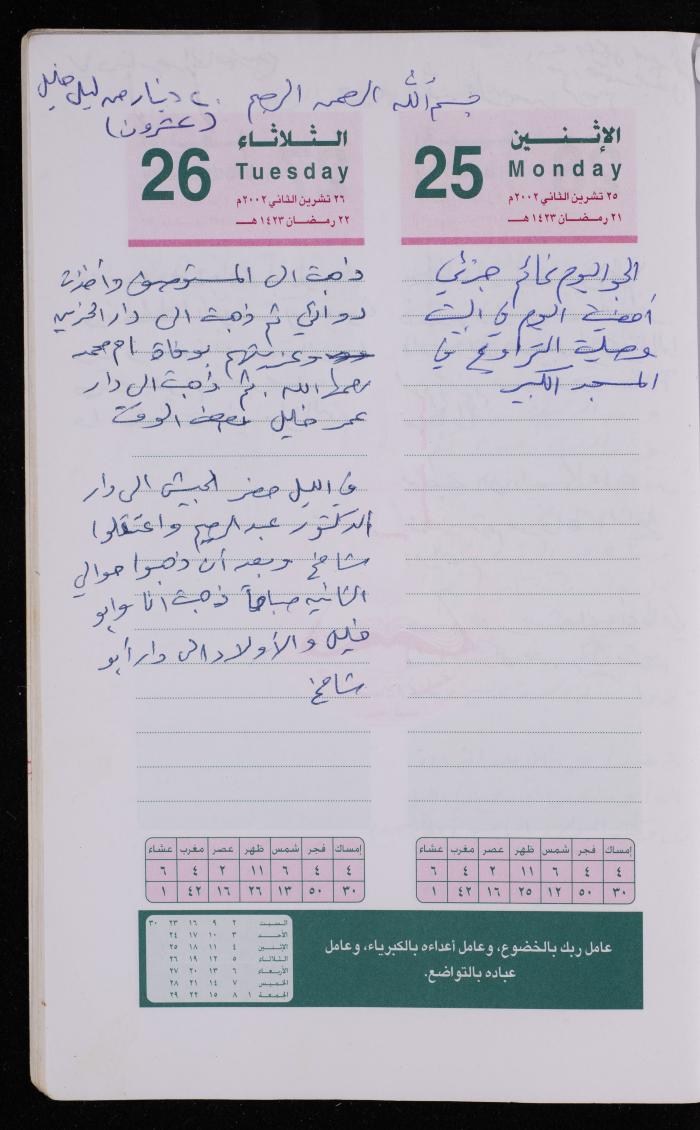 بسم الله الرحمن الرحيم
٢٠ دينار من ليلى خليل
(عشرون)
الإثـنـين
25 Monday
٢٥ تشرين الثاني ٢٠٠٢م
٢١ رمضان ١٤٢٣ هـ
الجو اليوم غائم جزئي
أمضيت اليوم في البيت
وصليت التراويح في
المسجد الكبير
الثلاثاء
26 Tuesday
٢٦ تشرين الثاني ٢٠٠٢م
٢٢ رمضان ١٤٢٣ هـ
ذهبت الى المستوصف وأخذت
دوائي ثم ذهبت الى دار
وعزيتهم بوفاة ام محمد
رحمها الله. ثم ذهبت الى دار
عمر خليل بعض الوقت
في الليل حضر الجيش الى دار
الدكتور عبد الرحيم واعتقلوا
شامخ وبعد أن ذهبوا حوالي
الثانيه صباحاً ذهبت انا وابو
خليل والأولاد الى دار أبو
شامخ
إمساك فجر شمس ظهر عصر مغرب عشاء
٤ ٤ ٦ ١١ ٢ ٤ ٦
٣٠ ٥٠ ١٢ ٢٥ ١٦ ٤٢ ١
إمساك فجر شمس ظهر عصر مغرب عشاء
٤ ٤ ٦ ١١ ٢ ٤ ٦
٣٠ ٥٠ ١٣ ٢٦ ١٦ ٤٢ ١
عامل ربك بالخضوع، وعامل أعداءه بالكبرياء، وعامل
عباده بالتواضع.
السبت ٢ ٩ ١٦ ٢٣ ٣٠
الأحد ٣ ١٠ ١٧ ٢٤
الإثنين ٤ ١١ ١٨ ٢٥
الثلاثاء ٥ ١٢ ١٩ ٢٦
الأربعاء ٦ ١٣ ٢٠ ٢٧
الخميس ٧ ١٤ ٢١ ٢٨
الجمعة ١ ٨ ١٥ ٢٢ ٢٩